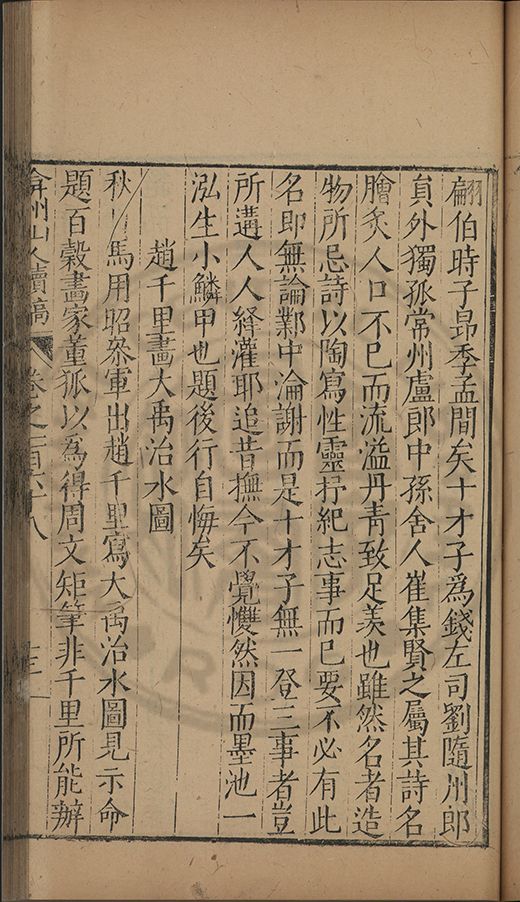 翩伯時子昂季孟間矣十才子爲錢左司劉隨州郎
員外獨孤常州盧郎中孫舍人崔集賢之屬其詩名
膾炙人口不已而流溢丹青致足羨也雖然名者造
物所忌詩以陶寫性靈抒紀志事而已要不必有此
名即無論鄴中淪謝而是十才子無一登三事者豈
所遘人人絳灌耶追昔撫今不覺戄然因而墨池一
泓生小鱗甲也題後行自悔矣
趙千里畫大禹治水圖
秋 馬用昭叅軍出趙千里寫大禹治水圖見示命
題百穀畫家董狐以為得周文矩筆非千里所能辦
弇州山人續稿 卷之一百六十八 十三